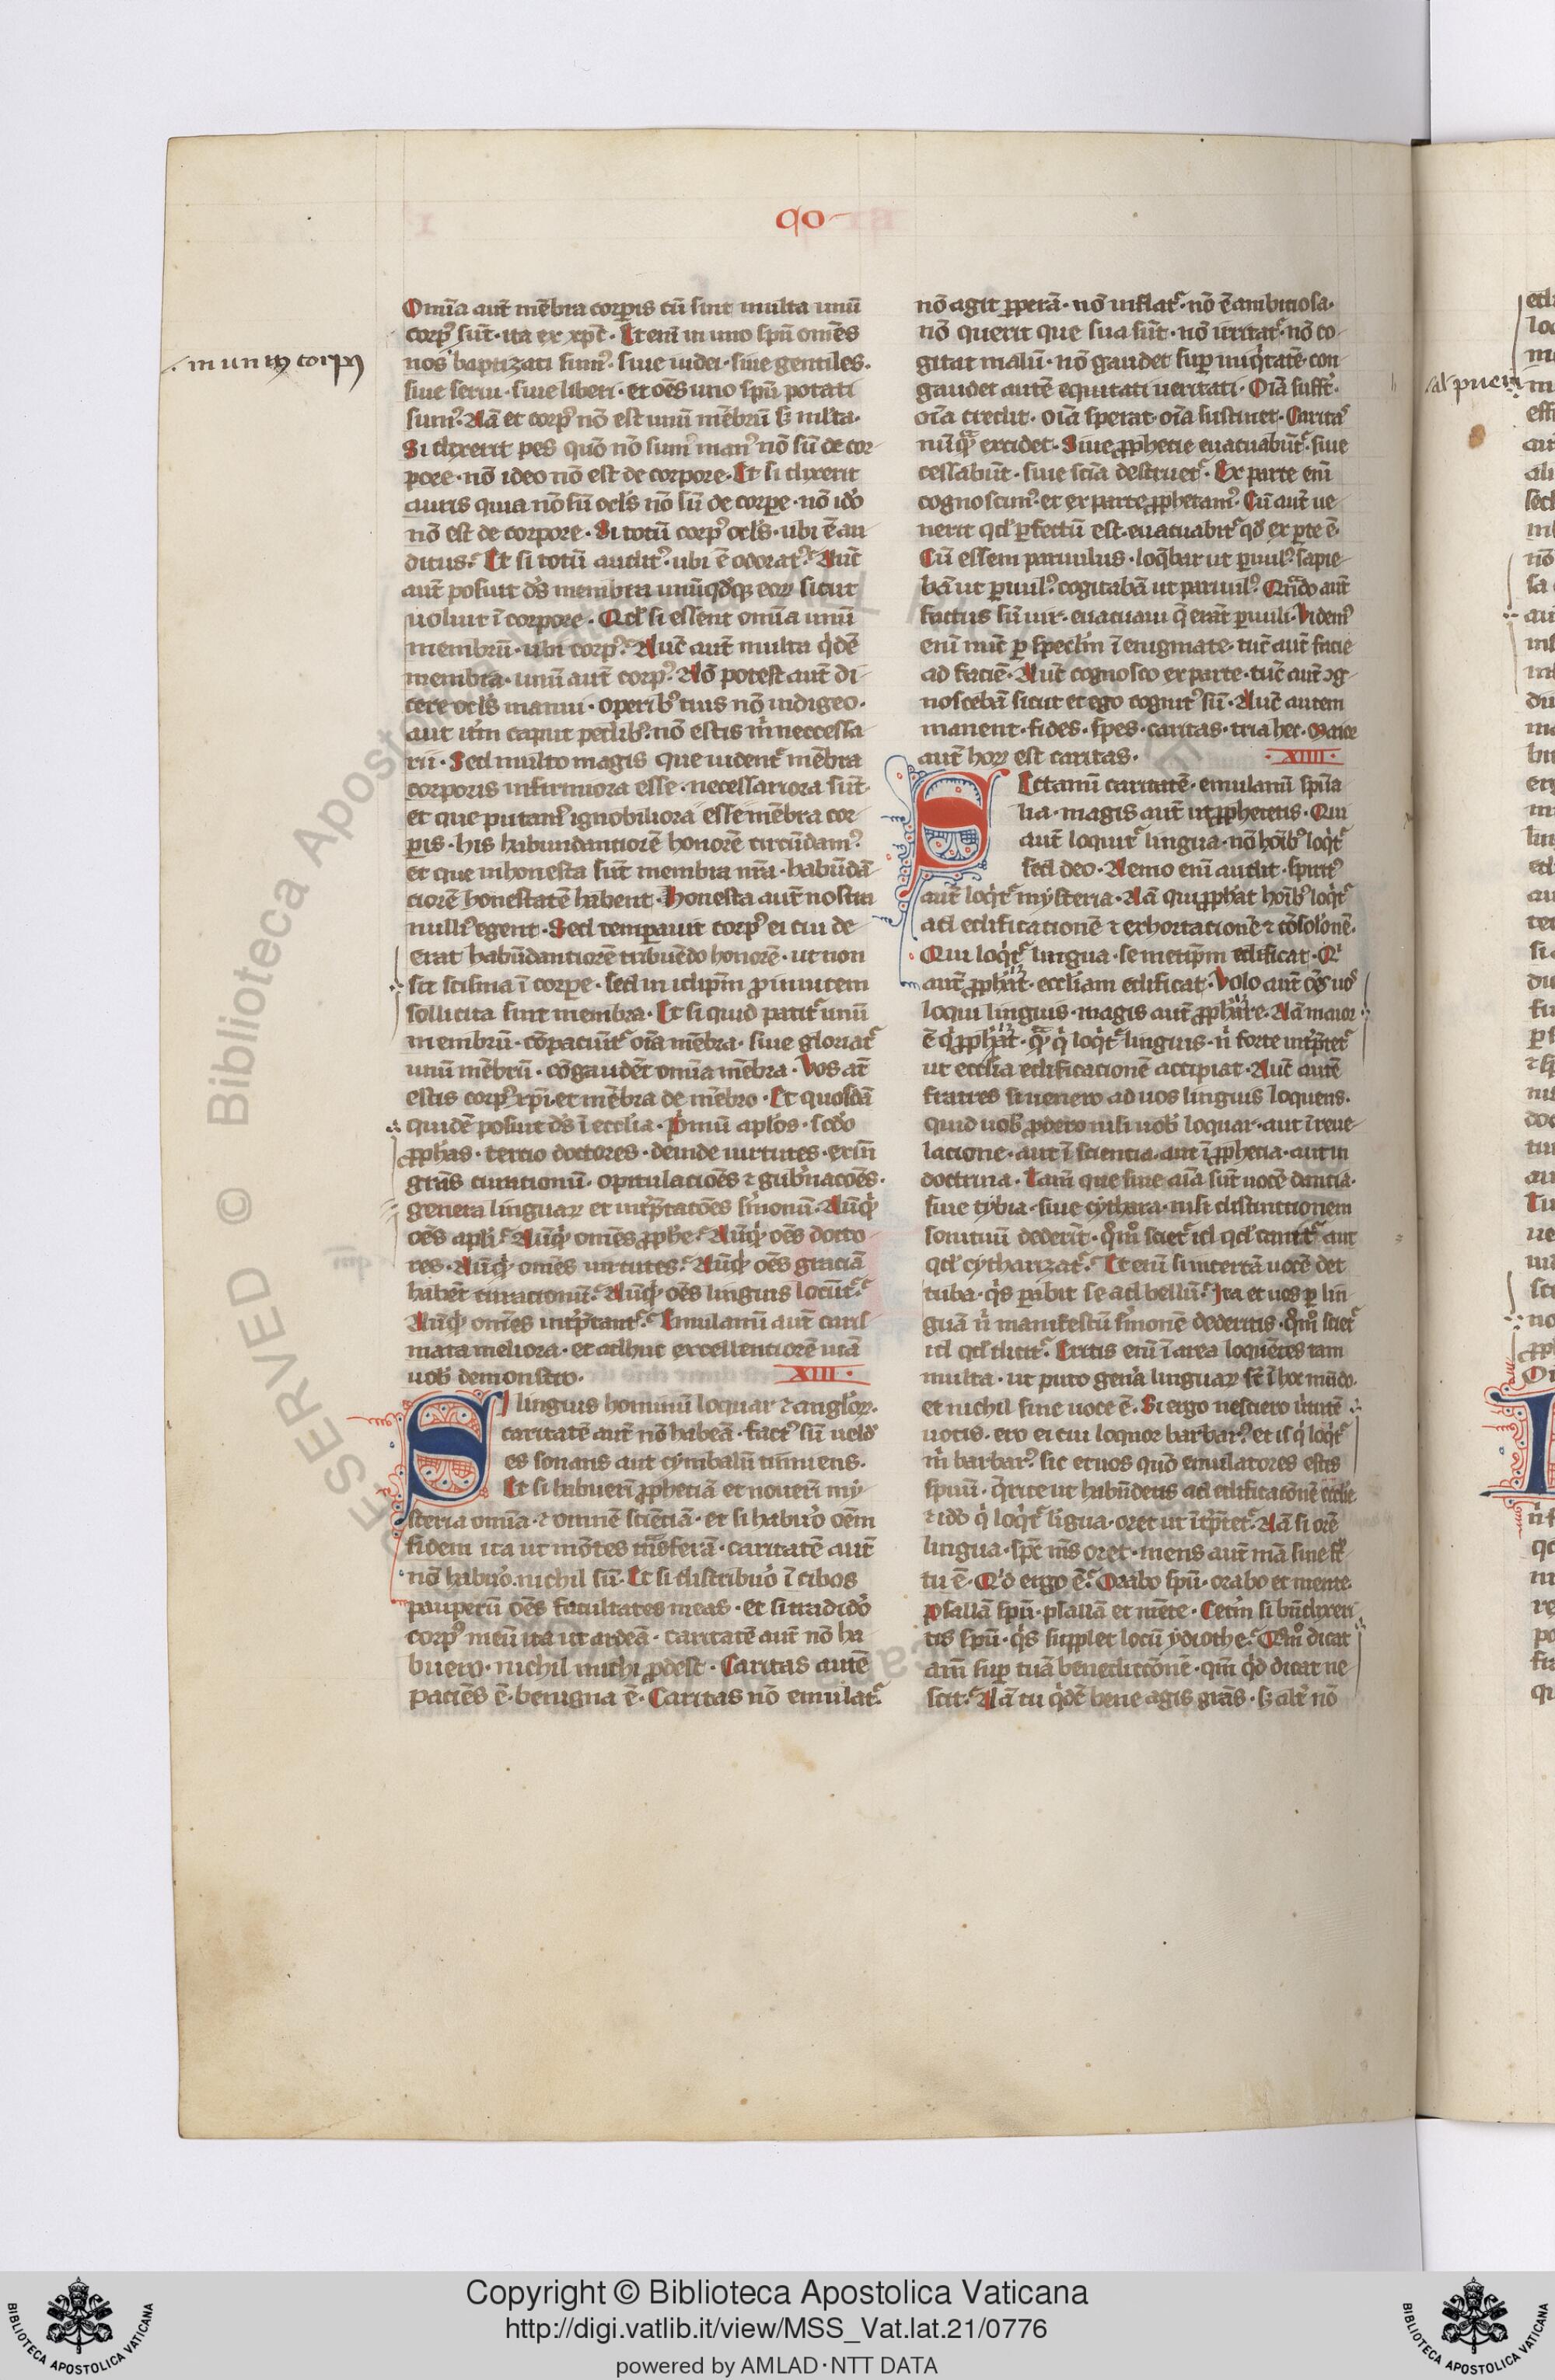 qo
Omīa aut̄ mēbra corpis cū sint multa unū
corpꝰ sūt · ita et xp̄c · Et enī in uno spū omēs
nos baptizati sumꝰ · siue iudei · siue gentiles ·
· in unū corpꝰ
siue serui · siue liberi · et oēs uno spū potati
sumꝰ · Nā et corpꝰ nō est unū mēbrū sꝫ multa ·
Si dixerit pes qūo nō sumꝰ manꝰ nō sū de cor
pore · nō ideo nō est de corpore · Et si dixerit
auris quia nō sū oclꝰs nō sū de corpe · nō ido
nō est de corpore · Si totū corpꝰ oclꝰs · ubi ē au
ditus · Et si totū auditꝰ · ubi ē odoratꝰ · Nūc
aut̄ posuit ds̄ membra unūqdqꝫ eoꝝ sicut
uoluit ī corpore · Qd si essent omīa unū
membrū · ubi corpꝰ · Nūc aut̄ multa qdē
membra · unū aut̄ corpꝰ · Nō potest aut̄ di
cere oclꝰs manui · operibꝰ tuis nō indigeo ·
aut itm̄ caput pedibꝰ · nō estis m neccessa
rii · Sed multo magis que uident̄ mēbra
corporis infirmiora esse · necessariora sūt ·
et que putamꝰ ignobiliora esse mēbra cor
pis · his habundantiorē honorē circūdamꝰ ·
et que inhonesta sūt membra nr̄a · habūdā
ciorē honestatē habent · Honesta aut̄ nostra
nulliꝰ egent · Sed temperauit corpꝰ ei cui de
erat habūdantiorē tribuēdo honorē · ut non
sit scisma ī corpe · sed in idipm̄ pro inuicem
sollicita sint membra · Et si quid patit̄ unū
membrū · cōpaciūt̄ oīa mēbra · siue gloriat̄
unū mēbrū · cōgaudēt omīa mēbra · Vos at̄
estis corpꝰ xpī · et mēbra de mēbro · Et quosdā
quidē posuit ds̄ ī ecclia · Pmū aplos · scdo
prophas · tercio doctores · deinde uirtutes · exin̄
grās curationū · opitulaciōes ⁊ gubnacōes ·
genera linguaꝝ et intptatōes smonū · Nūqd
oēs apli · Nūqd omēs pphe · Nūqd oēs docto
res · Nūqd omēs uirtutes · Nūqd oēs graciā
habēt curacionū · Nūqd oēs linguis locūt̄ ·
Nūqd omēs intptant̄ · Emulamī aut̄ caris
mata meliora · et adhuc excellentiorē uiā
uob demonstro ·
XIII ·
SI linguis hominū loquar ⁊ angloꝝ ·
caritatē aut̄ nō habeā · factꝰ sū uelud
es sonans aut cymbalū tinniens ·
Et si habuerī pphetiā et nouerī my
steria omīa · ⁊ omnē sciētiā · et si habuo oēm
fidem ita ut mōtes trāsferā · caritatē aut̄
nō habuo · nichil sū · Et si distribuo ī cibos
pauperū oēs facultates meas · et si tradido
corpꝰ meū ita ut ardeā · caritatē aut̄ nō ha
buero · nichil michi pdest · Caritas autē
paciēs ē · benigna ē · Caritas nō emulat̄ ·
nō agit pperā · nō inflat̄ · nō ē ambitiosa ·
nō querit que sua sūt · nō irritat̄ · nō co
gitat malū · nō gaudet sup iniqtatē · con
gaudet autē equitati ueritati · Oīa suffrt ·
oīa credit · oīa sperat · oīa sustinet · Caritas
nūqᵃ excidet · Siue pphetie euacuabūt̄ · siue
cessabūt · siue scīa destruet̄ · Ex parte enī
cognoscimꝰ · et ex parte pphetamꝰ · Cū aut̄ ue
nerit qd pfectū est · euacuabit̄ qd ex pte ē ·
Cū essem paruulus · loqbar ut puulꝰ · sapie
bā ut puulꝰ · cogitabā ut paruulꝰ · Qn̄do aut̄
factus sū uir · euacuaui q̄ erāt puuli · Videmꝰ
enī nūc p speclm̄ ī enigmate · tūc aut̄ facie
ad faciē · Nūc cognosco ex parte · tūc aut̄ ↄg
noscebā sicut et ego cognitꝰ sū · Nūc autem
manent · fides · spes · caritas · tria hec · Maior
aut̄ hoꝝ est caritas ·
· XIIII ·
SEctamī caritatē · emulamī spūa
lia · magis aut̄ ut pphetetis · Qui
aut̄ loquit̄ lingua · nō hoībꝰ loqt̄
sed deo · Nemo enī audit · spiritꝰ
aut̄ loqt̄ mysteria · Nā qui pphat hoībꝰ loqt̄
ad edificationē ⁊ exhortationē ⁊ cōsolonē ·
Qui loqt̄ lingua · semetipm̄ edificat · Qi
aut̄ pphat · eccliam edificat · Volo aut̄ oēs uos
loqui linguis · magis aut̄ pphare · Nā maior
ē q pphat · qᵃ q loqt̄ linguis · n forte intptet̄
ut ecclia edificacionē accipiat · Nūc autē
fratres si uenero ad uos linguis loquens ·
quid uob pdero nisi uob loquar · aut ī reue
lacione · aut ī scientia · aut ī pphetia · aut in
doctrina · Tam̄ que sine aīa sūt uocē dantia ·
siue tybia · siue cythara · nisi distinctionem
sonituū dederīt · qm̊ sciet̄ id qd canit̄ aut
qd cytharizat̄ · Et enī si incertā uocē det
tuba · qs parabit se ad bellū · Ita et uos p lin
guā n manifestū smonē dederitis · qm̊ sciet̄
id qd dicit̄ · Eritis enī ī aera loquētes tam
multa · ut puto gena linguaꝝ st̄ ī hoc mūdo ·
et nichil sine uoce ē · Si ergo nesciero uirtutē
uocis · ero ei cui loquor barbarꝰ · et is q loqt̄
m barbarꝰ · sic et uos quō emulatores estis
spiūū · qrite ut habūdetis ad edificatōnē ecclie
⁊ ido q loqt̄ ligua · oret ut ītptet̄ · Nā si orē
lingua · spc ms̄ oret · mens aut̄ mā sine fc
tu ē · Qd ergo ē · Orabo spū · orabo et mente ·
psallā spū · psallā et mēte · Cetm̄ si bn̄dixeri
tis spū · qs supplet locū ydiothe · Qm̊ dicat
am̄ sup tuā benedictōnē · qm̄ qd dicat ne
scit · Nā tu qdē bene agis grās · sꝫ alt̄ nō
Copyright © Biblioteca Apostolica Vaticana
http://digi.vatlib.it/view/MSS_Vat.lat.21/0776
powered by AMLAD·NTT DATA
BIBLIOTECA APOSTOLICA VATICANA
BIBLIOTECA APOSTOLICA VATICANA